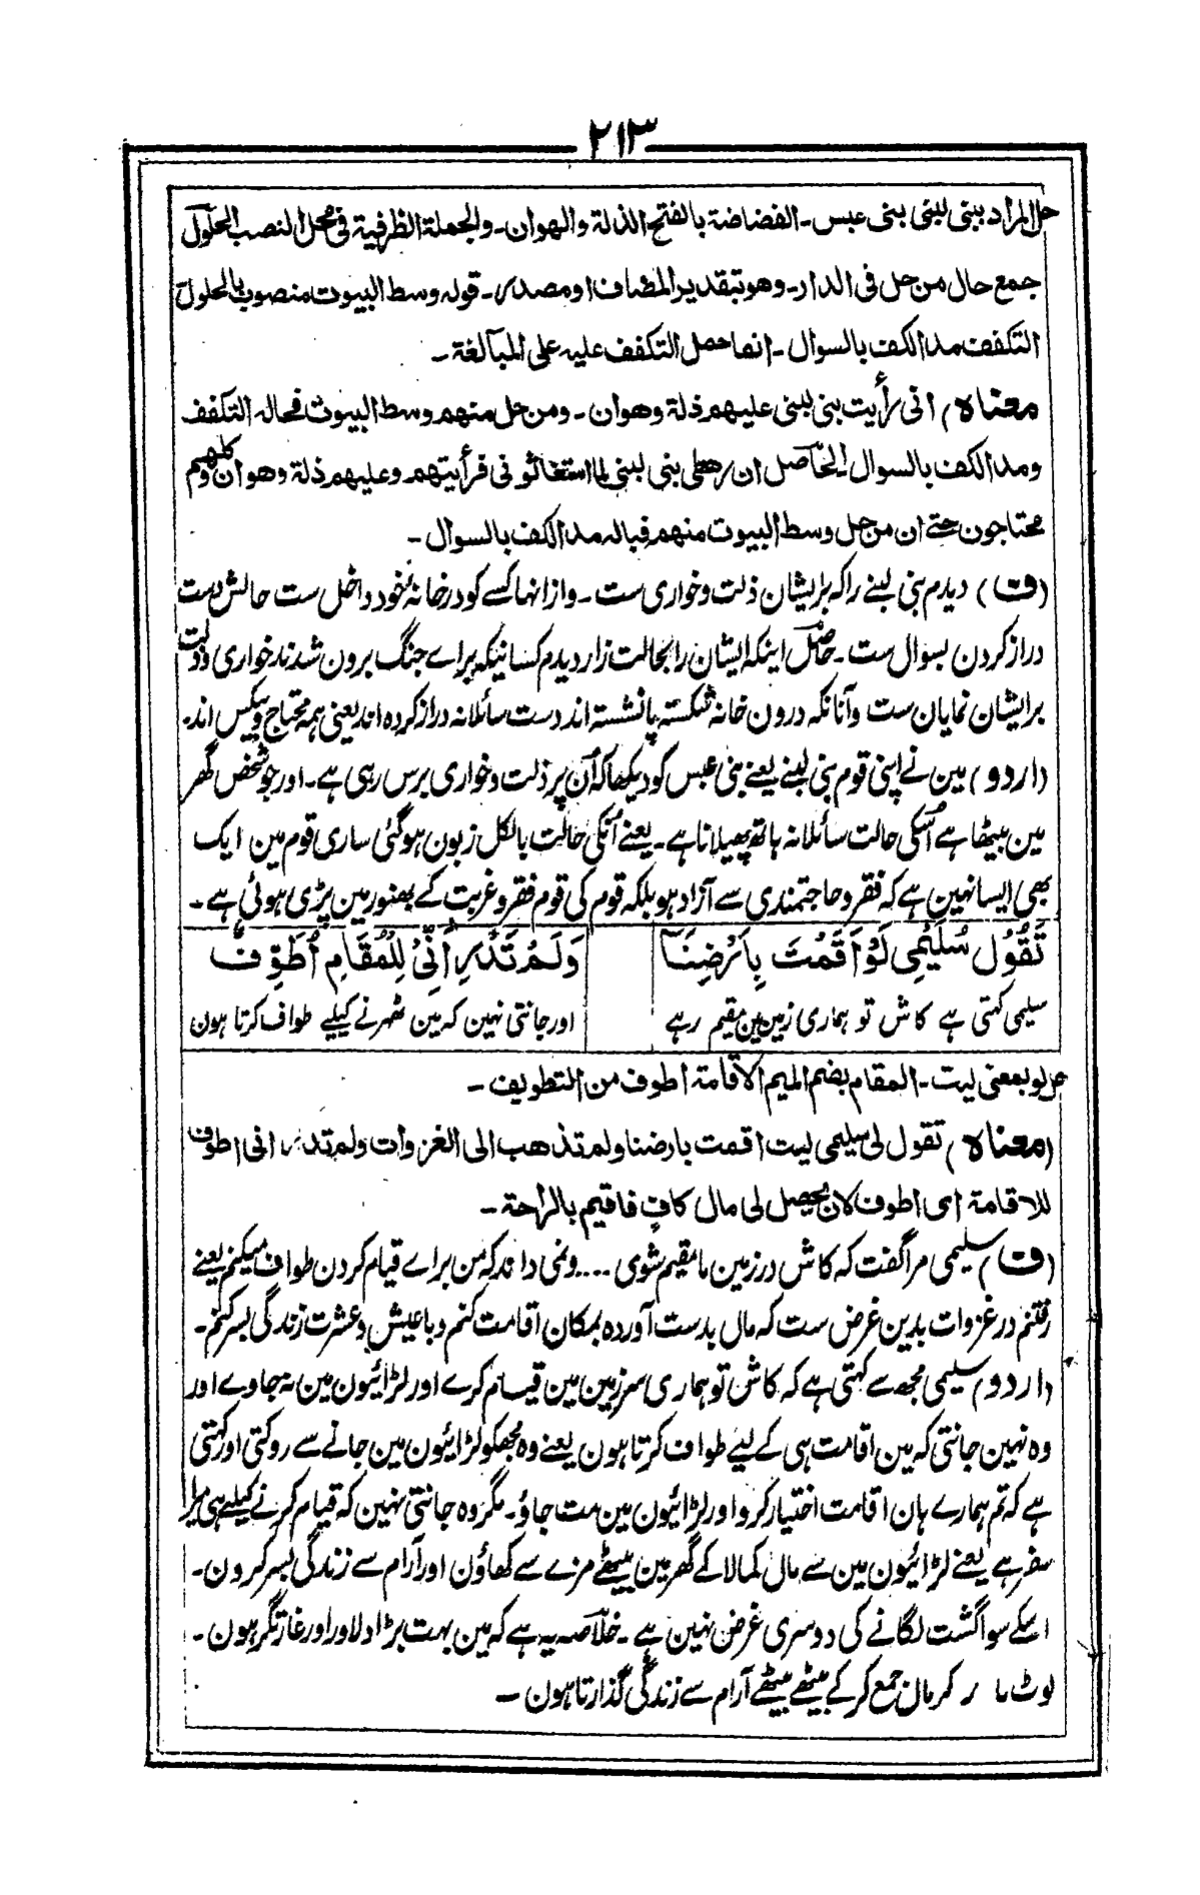 ۲۱۳
حل المراد ببنی لبنی بنی عبس۔ الفضاضة بالفتح الذلة والهوان۔ والجملة الظرفية فی محل النصب الحلول
جمع حال من حل فی الدار۔ وهو بتقدير المضاف او مصدر۔ قوله وسط البيوت منصوب بالحلول
التكفف مد الكف بالسوال۔ انما حمل التكفف عليه علی المبالغة۔
معناه) انی رأيت بنی لبنی عليهم ذلة وهوان۔ ومن حل منهم وسط البيوت فحاله التكفف
ومد الكف بالسوال الحاصل ان رهطی بنی لبنی لما استغاثو نی فرأيتهم وعليهم ذلة وهوان وهم كلهم
محتاجون حتے ان من حل وسط البيوت منهم فباله مد الكف بالسوال۔
(ف) دیدم بنی لبنے را کہ برایشان ذلت وخواری ست۔ واز انہا کسے کو درخانۂ خود داخل ست حالش دست
دراز کردن بسوال ست۔ حاصل اینکہ ایشان را بحالت زار دیدم کسانیکہ براے جنگ برون شدند خواری وذلت
برایشان نمایان ست وآنانکہ درون خانہ شکستہ پا نشستہ اند دست سائلانہ دراز کردہ اند یعنی ہمہ محتاج وبیکس اند۔
(اردو) مین نے اپنی قوم بنی لبنے یعنے بنی عبس کو دیکھا کہ اُن پر ذلت وخواری برس رہی ہے۔ اور جو شخص گھر
مین بیٹھا ہے اُسکی حالت سائلانہ ہاتھ پھیلانا ہے۔ یعنے اُنکی حالت بالکل زبون ہوگئی ساری قوم مین ایک
بھی ایسا نہین ہے کہ فقر وحاجتمندی سے آزاد ہو بلکہ قوم کی قوم فقر وغربت کے بھنور مین پڑی ہوئی ہے۔
تَقُوْلُ سُلَيْمٰی لَوْ اَقَمْتَ بِاَرْضِنَا وَلَمْ تَدْرِ اَنِّیْ لِلْمُقَامِ اُطَوِّفُ
سلیمی کہتی ہے کاش تو ہماری زمین مین مقیم رہے اور جانتی نہین کہ مین ٹھہرنے کیلیے طواف کرتا ہون
حل لو بمعنی ليت۔ المقام بضم الميم الاقامة اطوف من التطويف۔
(معناه) تقول لی سليمی ليت اقمت بارضنا ولم تذهب الی الغزوات ولم تدر انی اطوف
للاقامة ای اطوف لان يحصل لی مال كافٍ فاقيم بالراحة۔
(ف) سلیمی مرا گفت کہ کاش در زمین ما مقیم شوی .... ونمی داند کہ من براے قیام کردن طواف میکنم یعنے
رفتنم در غزوات بدین غرض ست کہ مال بدست آوردہ بمکان اقامت کنم وباعیش وعشرت زندگی بسر کنم۔
(اردو) سلیمی مجھ سے کہتی ہے کہ کاش تو ہماری سرزمین مین قیام کرے اور لڑائیون مین نہ جاوے اور
وہ نہین جانتی کہ مین اقامت ہی کے لیے طواف کرتا ہون یعنے وہ مجھکو لڑائیون مین جانے سے روکتی اور کہتی
ہے کہ تم ہمارے ہان اقامت اختیار کرو اور لڑائیون مین مت جاؤ۔ مگر وہ جانتی نہین کہ قیام کرنے کیلیے ہی میرا
سفر ہے یعنے لڑائیون مین سے مال کما لا کے گھر مین بیٹھے مزے سے کھاؤن اور آرام سے زندگی بسر کرون۔
اسکے سوا گشت لگانے کی دوسری غرض نہین ہے۔ خلاصہ یہ ہے کہ مین بہت بڑا دلاور اور غارتگر ہون۔
لوٹ ما ر کر مال جمع کر کے بیٹھے بیٹھے آرام سے زندگی گذارتا ہون۔